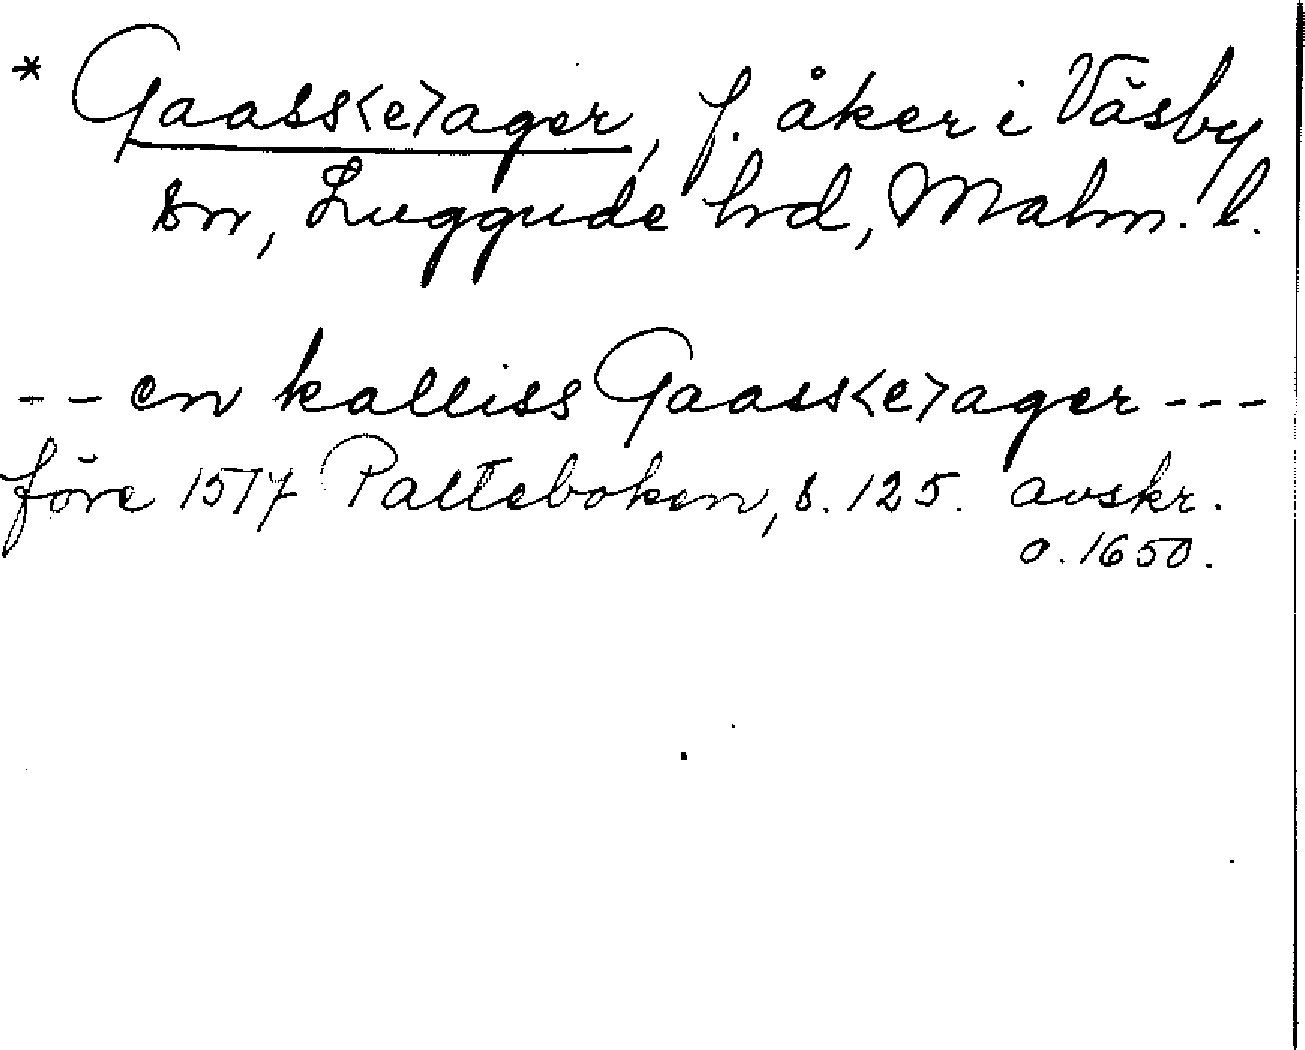 * Gaass<e>ager, f. åker i Väsby
sn, Luggude hrd, Malm. l.
-- en kalliss Gaass<e>ager ---
före 1517 Palteboken, s. 125. avskr.
o. 1650.